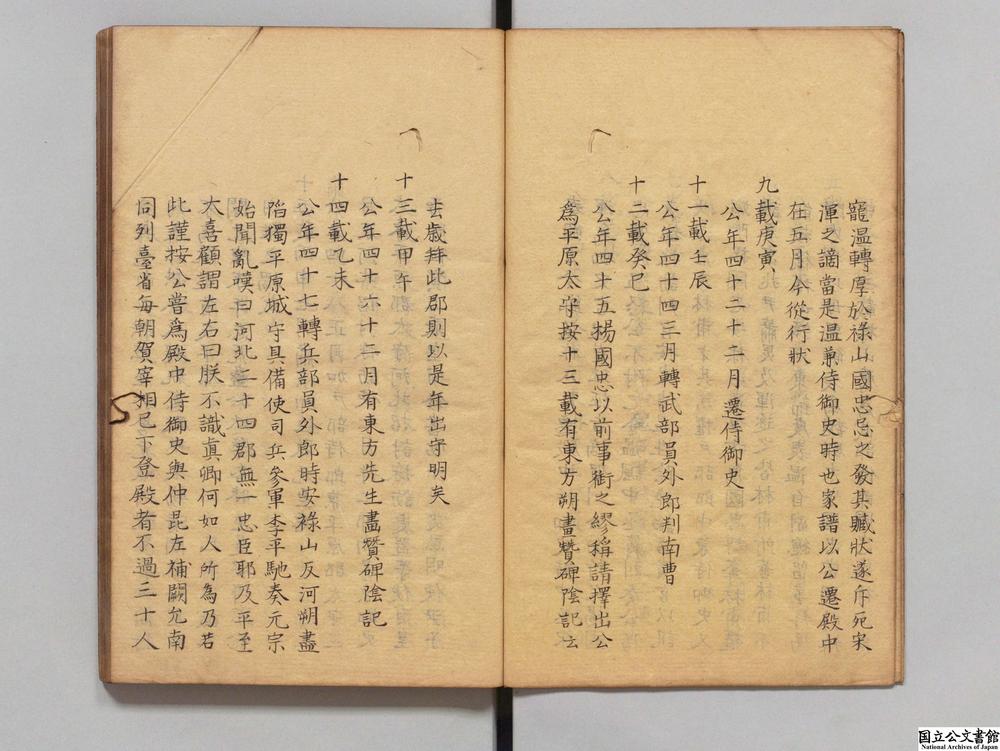 寵溫轉厚於祿山國忠忌之發其贓狀遂斥死宋
渾之謫當是溫兼侍御史時也家譜以公遷殿中
在五月今從行狀
九載庚寅
公年四十二十二月遷侍御史
十一載壬辰
公年四十四三月轉武部員外郎判南曹
十二載癸巳
公年四十五揚國忠以前事銜之繆稱請擇出公
為平原太守按十三載有東方朔畫贊碑陰記云
去歲拜此郡則以是年出守明矣
十三載甲午
公年四十六十二月有東方先生畫贊碑陰記
十四載乙未
公年四十七轉兵部員外郎時安祿山反河朔盡
陷獨平原城守具備使司兵參軍李平馳奏元宗
始聞亂嘆曰河北二十四郡無一忠臣耶及平至
大喜顧謂左右曰朕不識真卿何如人所為乃若
此謹按公嘗為殿中侍御史與仲昆左補闕允南
同列臺省每朝賀宰相已下登殿者不過三十人
国立公文書館
National Archives of Japan